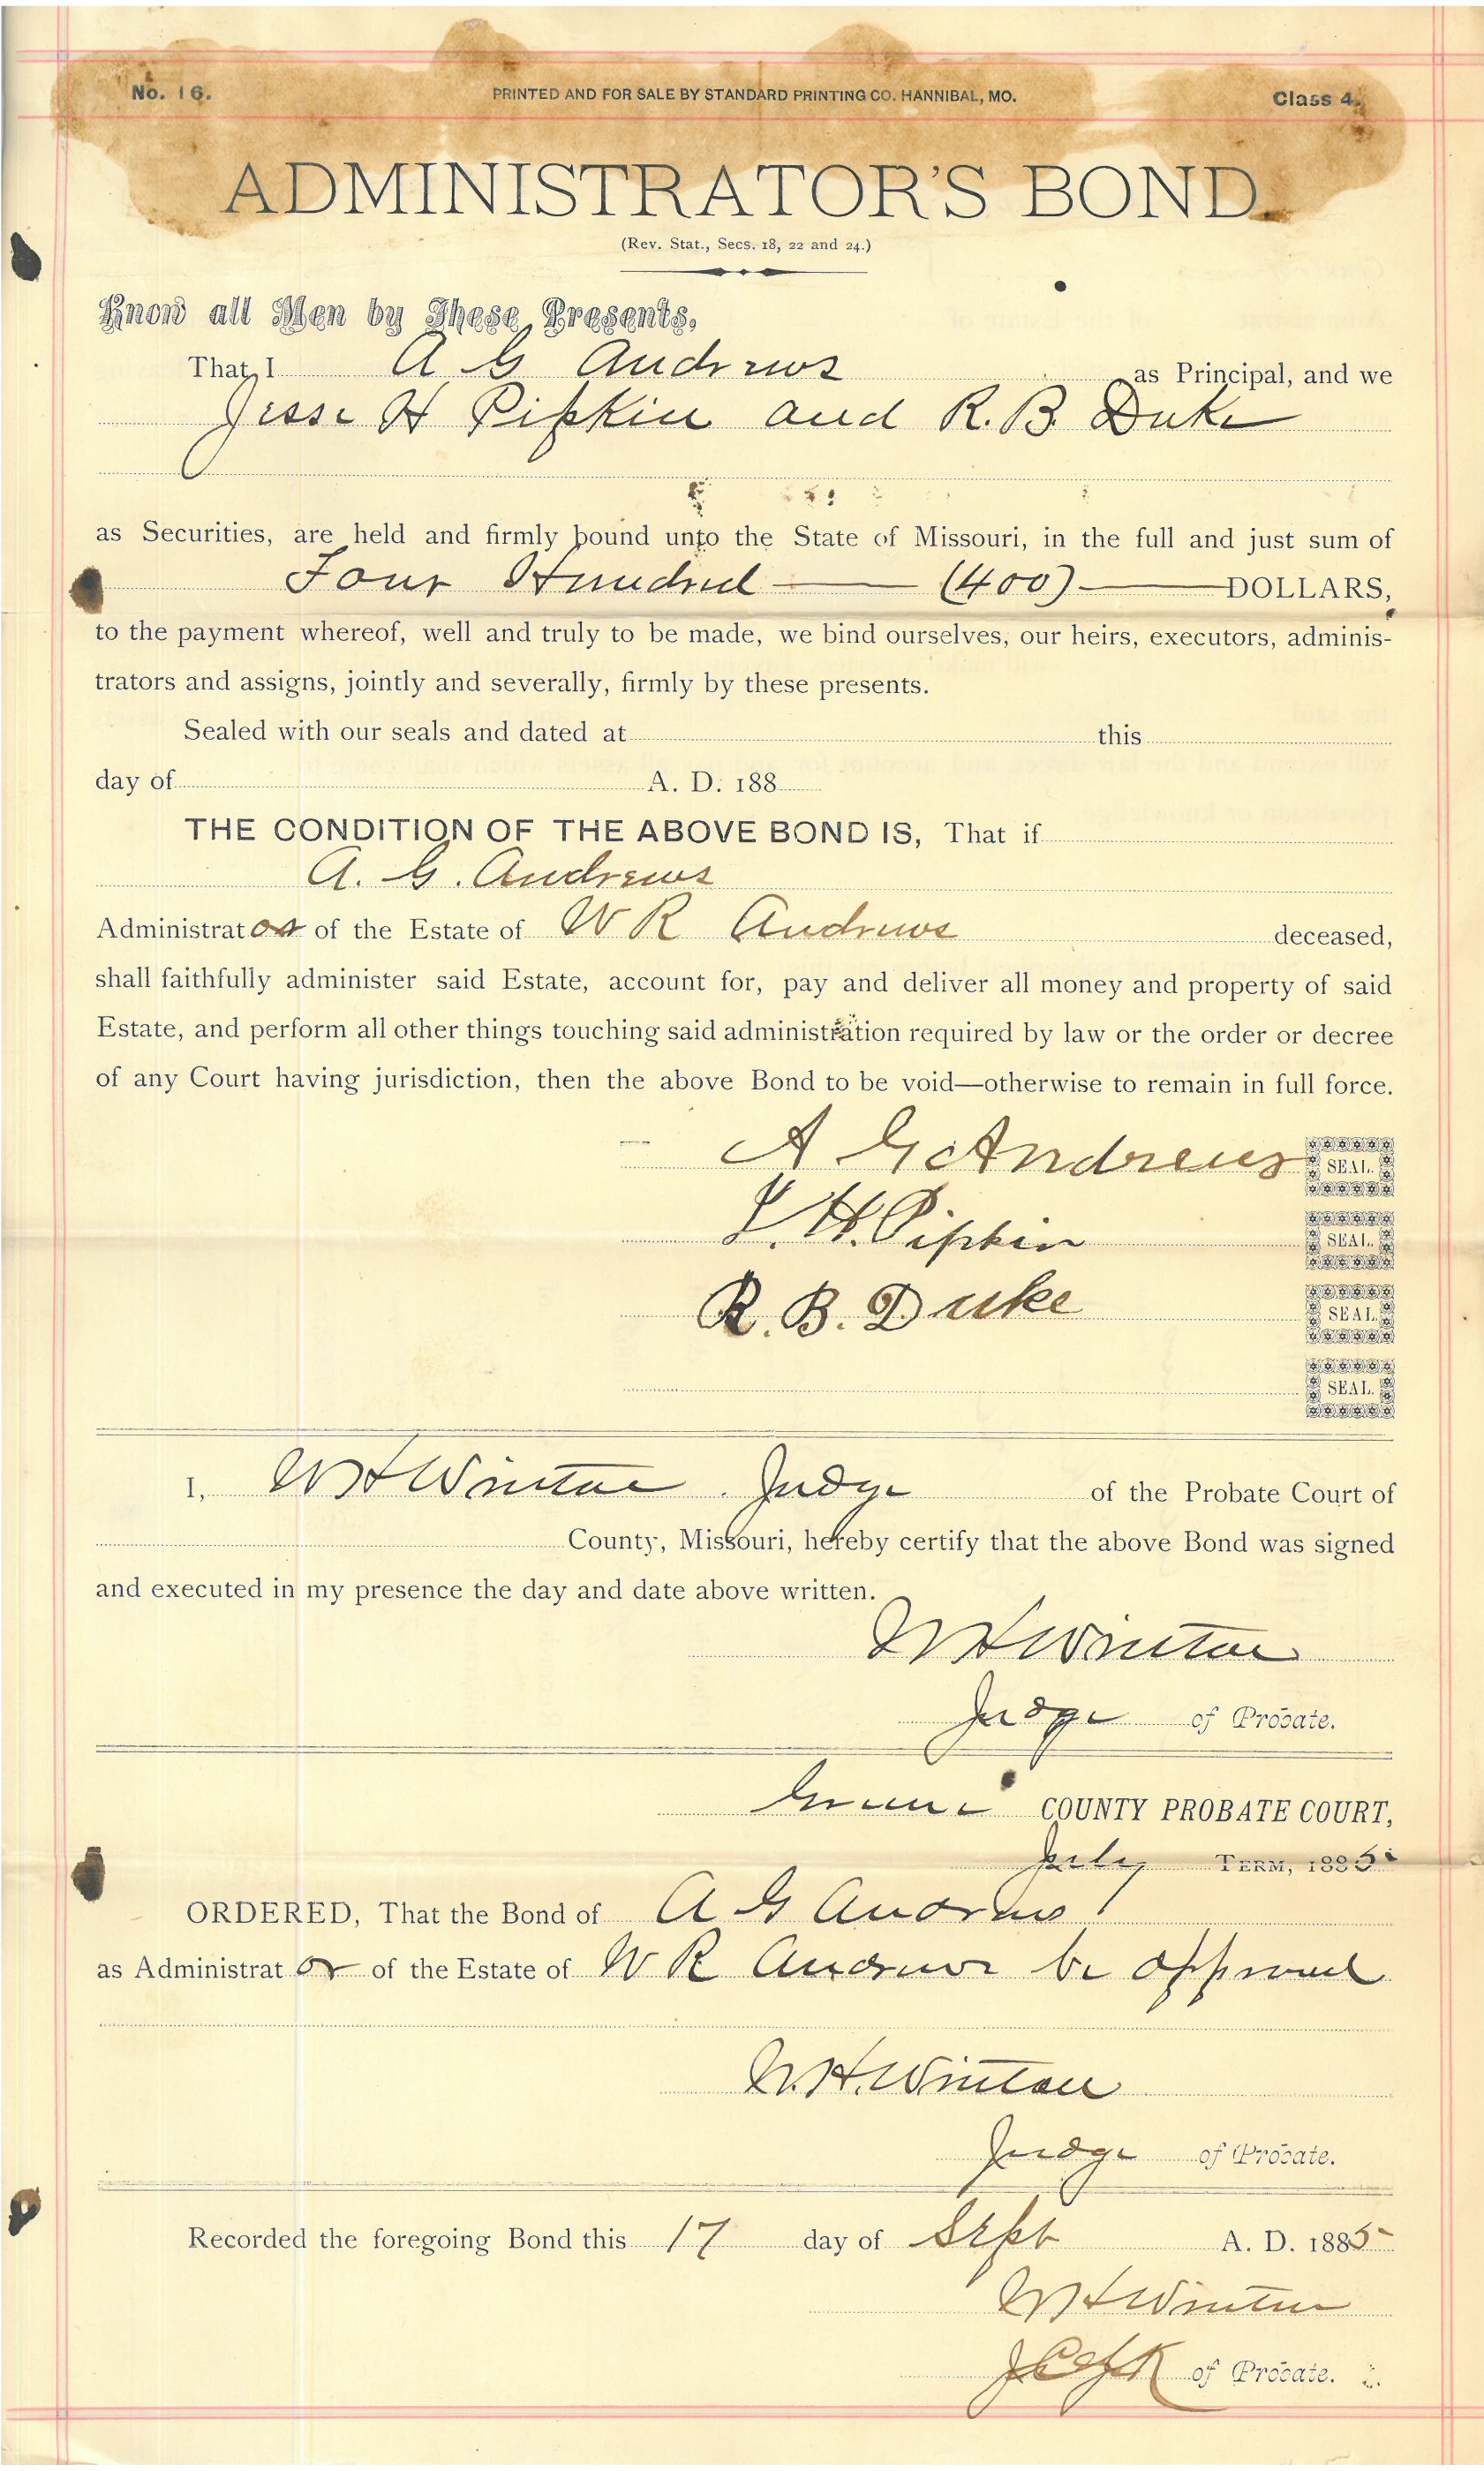 No. 16.
PRINTED AND FOR SALE BY STANDARD PRINTING CO. HANNIBAL, MO.
Class 4.
ADMINISTRATOR'S BOND.
(Rev. Stat., Secs. 18, 22 and 24.)
Know all Men by These Presents,
That I A G Andrews as Principal, and we
Jesse H Pipkin and R. B. Duke
as Securities, are held and firmly bound unto the State of Missouri, in the full and just sum of
Four Hundred — (400) — DOLLARS,
to the payment whereof, well and truly to be made, we bind ourselves, our heirs, executors, adminis-
trators and assigns, jointly and severally, firmly by these presents.
Sealed with our seals and dated at this
day of A. D. 188
THE CONDITION OF THE ABOVE BOND IS, That if
A. G. Andrews
Administrator of the Estate of W R Andrews deceased,
shall faithfully administer said Estate, account for, pay and deliver all money and property of said
Estate, and perform all other things touching said administration required by law or the order or decree
of any Court having jurisdiction, then the above Bond to be void—otherwise to remain in full force.
A G Andrews SEAL.
J. H. Pipkin SEAL.
R. B. Duke SEAL.
SEAL.
I, W H Winton Judge of the Probate Court of
County, Missouri, hereby certify that the above Bond was signed
and executed in my presence the day and date above written.
W H Winton
Judge of Probate.
Greene COUNTY PROBATE COURT,
July TERM, 1885
ORDERED, That the Bond of A G Andrews
as Administrator of the Estate of W R Andrews be approved
W. H. Winton
Judge of Probate.
Recorded the foregoing Bond this 17 day of Sept A. D. 1885
W H Winton
of Probate.